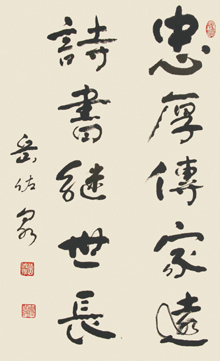 忠厚傳家遠
詩書繼世長
岳佑泉